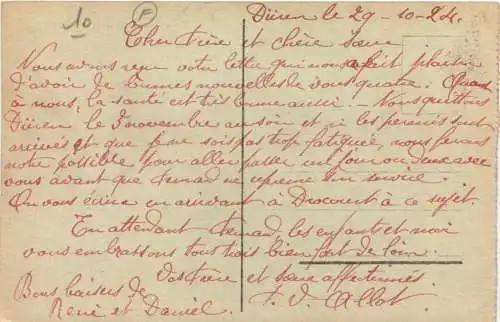 10
F
Düren le 29-10-24.
Cher Frère et chère Sœur
Nous avons reçu votre lettre qui nous a fait plaisir
d'avoir de bonnes nouvelles de vous quatre. Quant
à nous, la santé est très bonne aussi. Nous quittons
Düren le 3 novembre au soir et si les permis sont
arrivés et que je ne sois pas trop fatiguée, nous ferons
notre possible pour aller passer un jour ou deux avec
vous avant que Fernand ne reprenne son service.
On vous écrira en arrivant à Drocourt à ce sujet.
En attendant Fernand, les enfants et moi
vous embrassons tout trois bien fort de loin.
Vos frère et sœur affectionnés.
Bons baisers de
F. V. Allot.
René et Daniel.